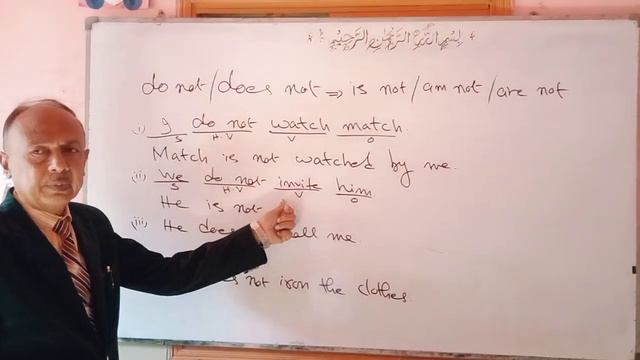 بسم الله الرحمن الرحيم
do not/does not ⇒ is not/am not/are not
(i) I do not watch match.
S H.V V O
Match is not watched by me.
(ii) We do not invite him
S H.V V O
He is not
(iii) He call me
not iron the clothes.